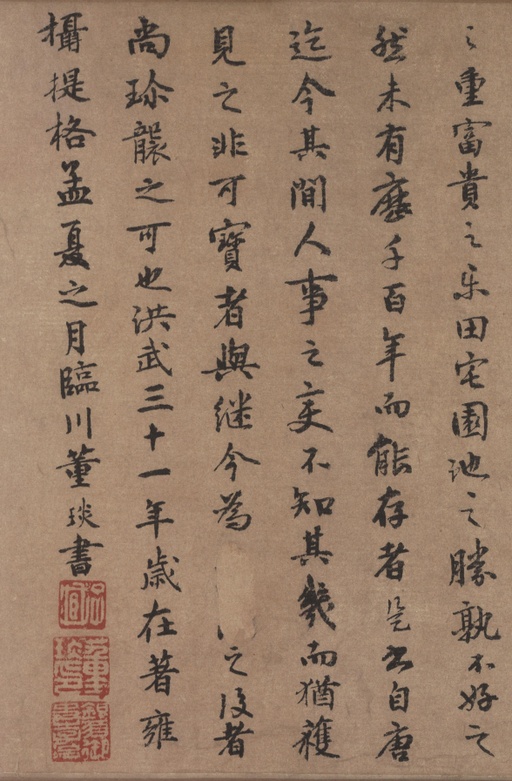 之重富貴之樂田宅園池之勝孰不好之
然未有歷千百年而能存者是書自唐
迄今其間人事之變不知其幾而猶獲
見之非可寶者與繼今為之後者
尚珍襲之可也洪武三十一年歲在著雍
攝提格孟夏之月臨川董琰書